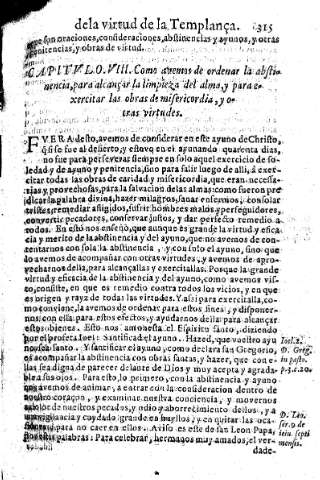 de la virtud de la Templança. 315
que son oraciones, consideraciones, abstinencias y ayunos, y otras
penitencias, y obras de virtud.
CAPITVLO. VIII. Como auemos de ordenar la absti-
nencia, para alcançar la limpieza del alma, y para e-
xercitar las obras de misericordia, y o-
tras virtudes.
FVERA desto, auemos de considerar en este ayuno de Christo,
q si se fue al desierto, y estuuo en el ayunando quarenta dias,
no fue para perseuerar siempre en solo aquel exercicio de so-
ledad y de ayuno y penitencia, sino para salir luego de alli, a exer-
citar todas las obras de caridad y misericordia, que eran necessa-
rias, y prouechosas, para la saluacion de las almas: como fueron pre
dicar la palabra diuina, hazer milagros, sanar enfermos, consolar
tristes, remediar afligidos, sufrir hombres malos y perseguidores,
conuertir pecadores, conseruar justos, y dar perfecto remedio a
todos. En esto nos enseño, que aunque es grande la virtud y efica
cia y merito de la abstinencia y del ayuno, que no auemos de con-
tentarnos con sola la abstinencia, y con solo el ayuno, sino que
lo auemos de acompañar con otras virtudes, y auemos de apro-
uecharnos della, para alcançallas y exercitallas. Porque la grande
virtud y eficacia de la abstinencia y del ayuno, como auemos vis-
to, consiste, en que es remedio contra todos los vicios, y en que
es origen y rayz de todas las virtudes. Y assi para exercitalla, co-
mo conuiene, la auemos de ordenar para estos fines, y disponer-
nos con ella para estos efectos, y ayudarnos della para alcançar
estos bienes. Esto nos amonesta el Espiritu santo, diziendo
por el profeta Ioel: Santificad el ayuno. Hazed, que vuestro ayu
no sea santo. Y santificar el ayuno, como declara san Gregorio,
es acompañar la abstinencia con obras santas, y hazer, que con e-
llas sea digna de parecer delante de Dios y muy acepta y agrada-
ble a sus ojos. Para esto, lo primero, con la abstinencia y ayuno
nos auemos de animar, a entrar con la consideracion dentro de
nuestro coraçon, y examinar nuestra conciencia, y mouernos
a dolor de nuestros pecados, y odio y aborrecimiento dellos, y a
vigilancia y cuydado grande en huyllos, y en quitar las oca-
siones para no caer en ellos. Auiso es este de san Leon Papa,
por estas palabras: Para celebrar, hermanos muy amados, el ver-
dade-
Ioel. 2.
D. Greg.
in pasto.
p. 3. c. 20.
D. Leo.
ser. 9. de
ieiu septi
mensis.